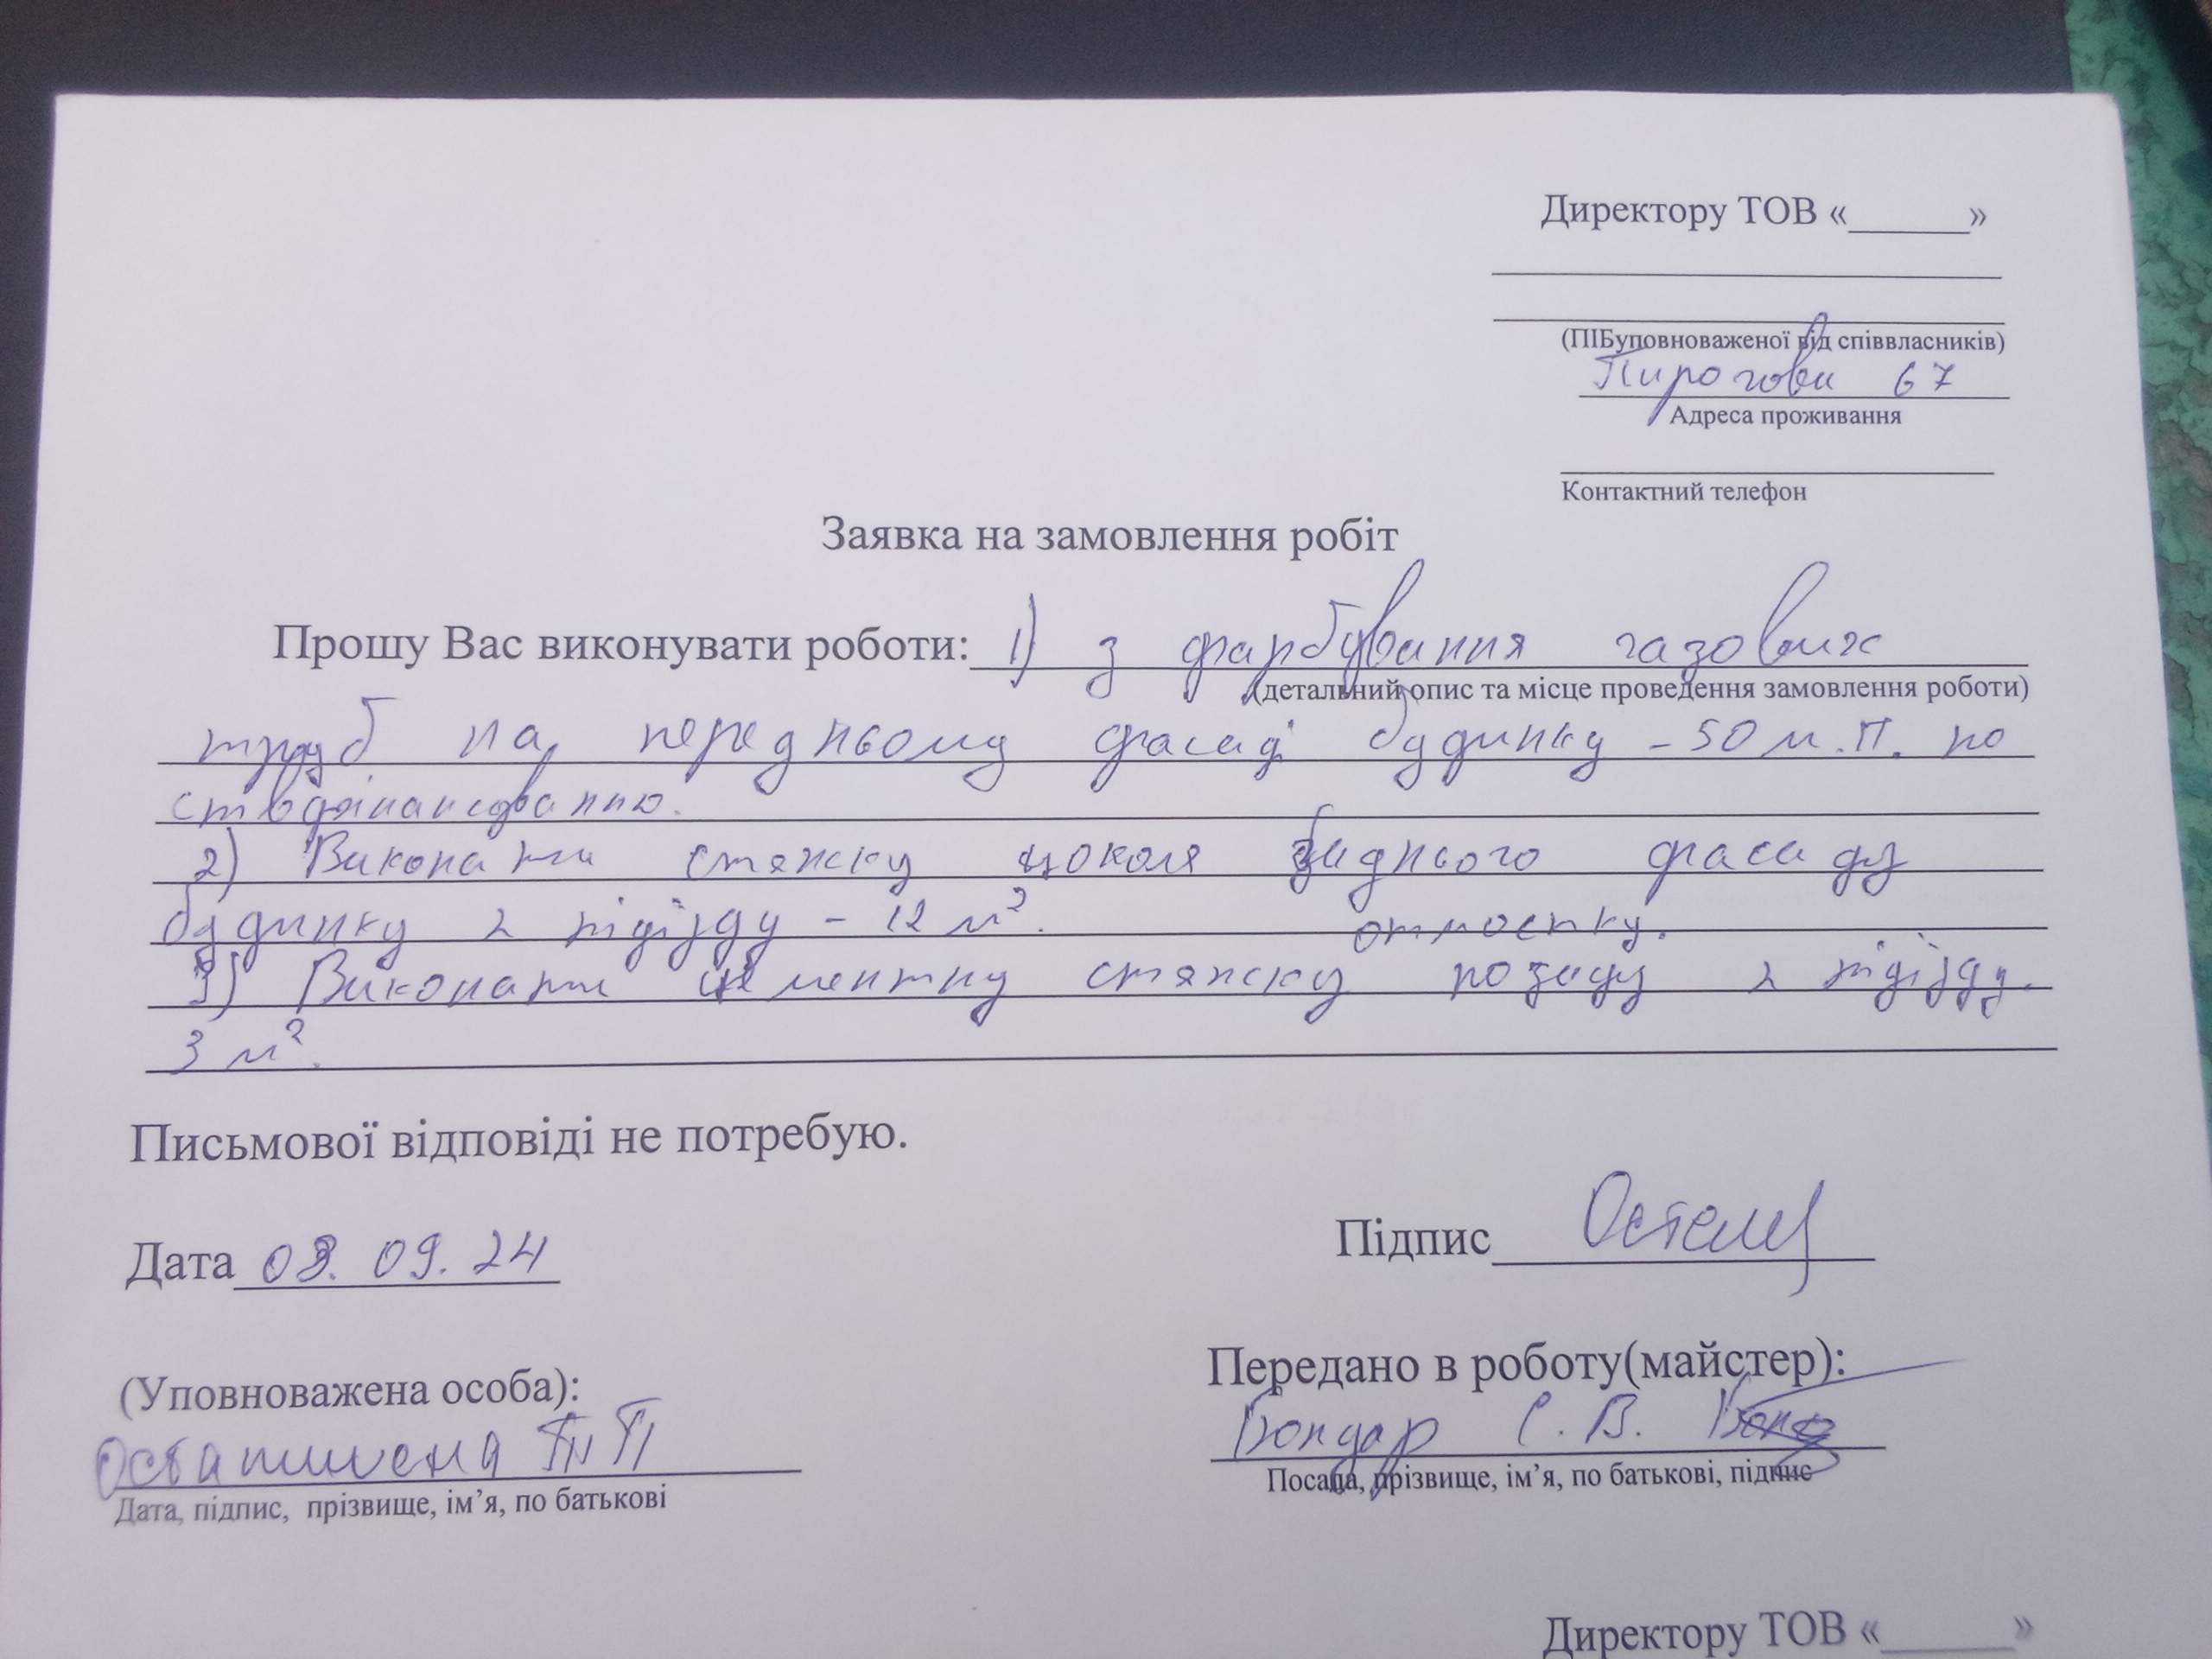 Директору ТОВ «______»
(ПІБуповноваженої від співвласників)
Пирогова 67
Адреса проживання
Контактний телефон
Заявка на замовлення робіт
Прошу Вас виконувати роботи: 1) з фарбування газових
(детальний опис та місце проведення замовлення роботи)
труб на передньому фасаді будинку - 50 м.п. по
2) Виконати стяжку цоколя заднього фасаду
будинку 2 підїзду - 12 м².
отмостку.
3) Виконати цементну стяжку позаду 2 підїзду.
3 м².
Письмової відповіді не потребую.
Дата 03.09.24
Підпис
(Уповноважена особа):
Передано в роботу(майстер):
Бондар С. В.
Посада, прізвище, ім’я, по батькові, підпис
Дата, підпис, прізвище, ім’я, по батькові
Директору ТОВ «______»